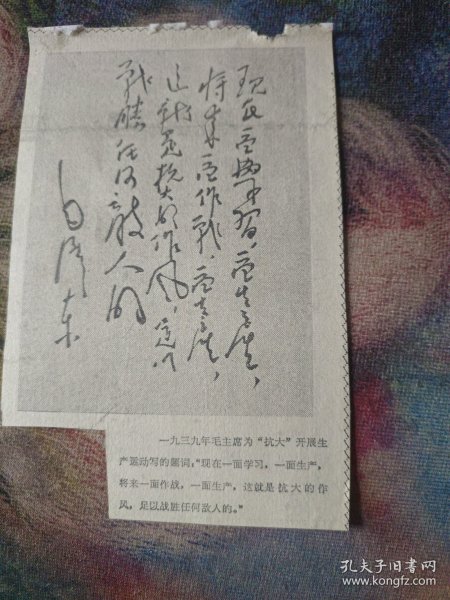 现在一面学习，一面生产，
将来一面作战，一面生产，
这就是抗大的作风，足以
战胜任何敌人的
毛泽东
一九三九年毛主席为“抗大”开展生
产运动写的题词：“现在一面学习，一面生产，
将来一面作战，一面生产，这就是抗大的作
风，足以战胜任何敌人的。”
孔夫子旧书网
www.kongfz.com